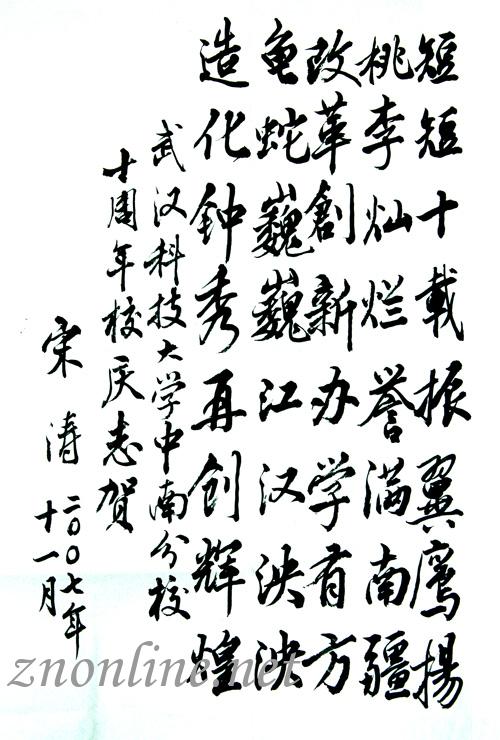 短短十載振翼鹰揚
桃李灿烂誉满南疆
改革創新办学有方
龟蛇巍巍江汉泱泱
造化钟秀再创辉煌
武汉科技大学中南分校
十周年校庆志贺
宋涛
二〇〇七年
十一月
znonline.net